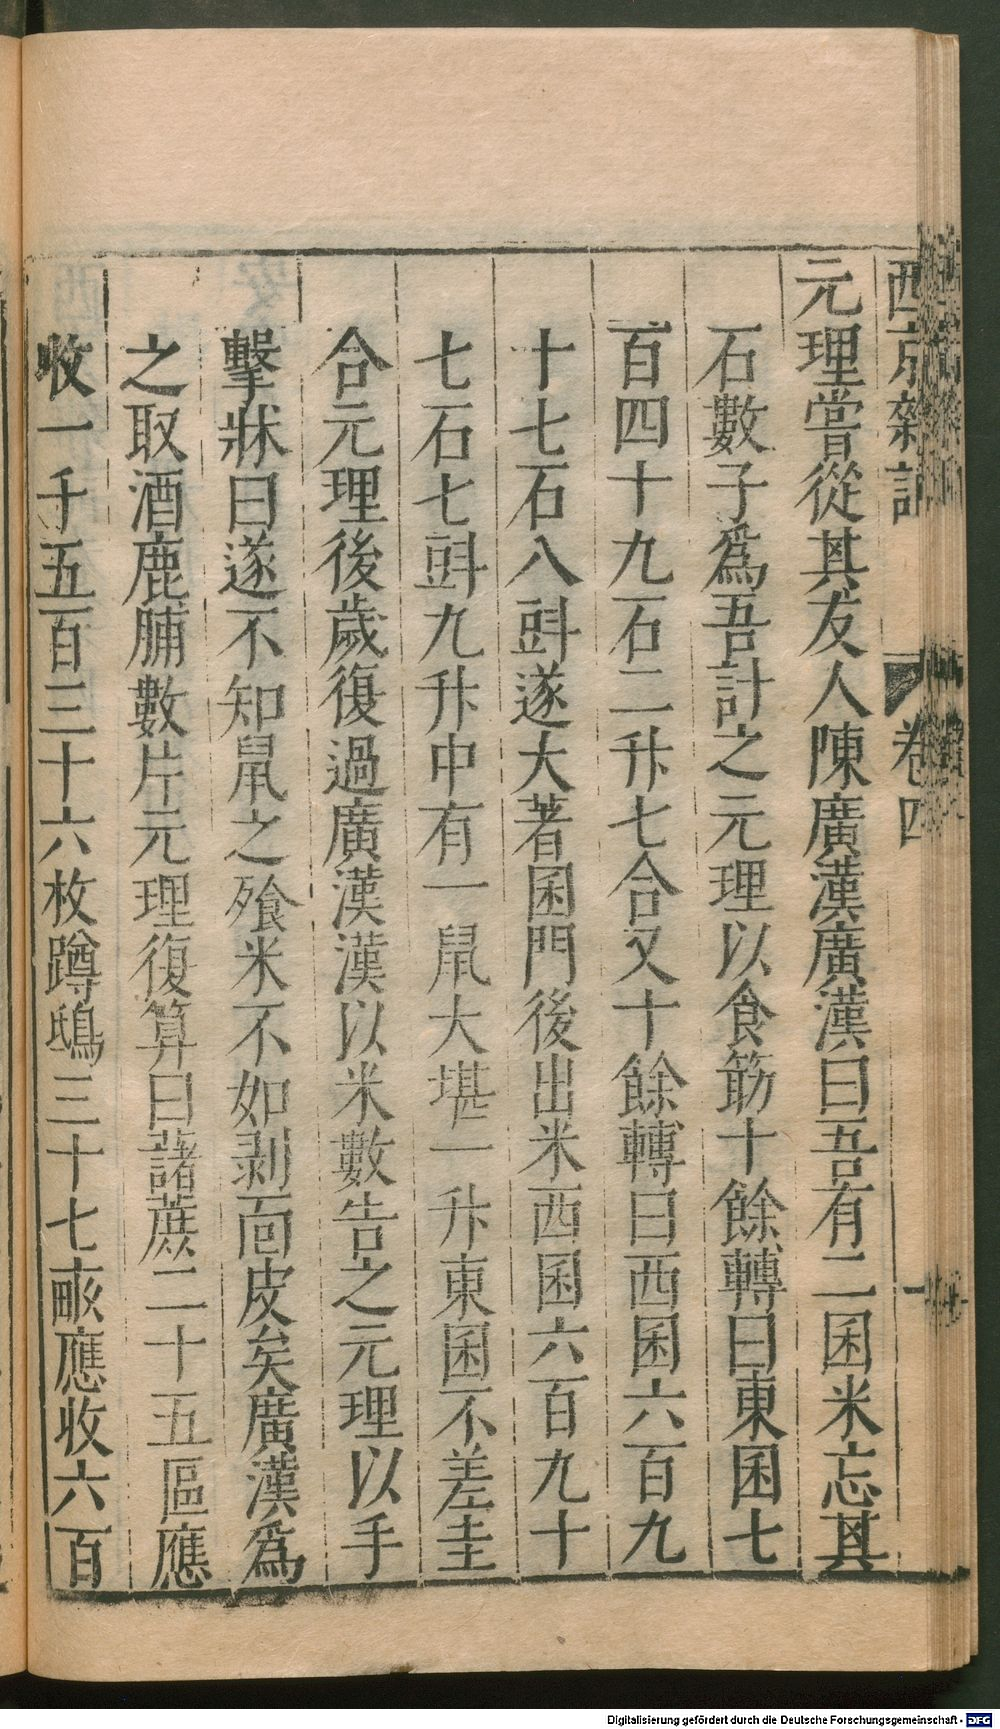 西京雜記 卷四 一
元理嘗從其友人陳廣漢廣漢曰吾有二囷米忘其
石數子爲吾計之元理以食筯十餘轉曰東囷七
百四十九石二升七合又十餘轉曰西囷六百九
十七石八㪷遂大著囷門後出米西囷六百九十
七石七㪷九升中有一鼠大堪一升東囷不差圭
合元理後歲復過廣漢漢以米數告之元理以手
擊牀曰遂不知鼠之飱米不如剥面皮矣廣漢爲
之取酒鹿脯數片元理復算曰藷蔗二十五區應
收一千五百三十六枚蹲鴟三十七畝應收六百
Digitalisierung gefördert durch die Deutsche Forschungsgemeinschaft - DFG